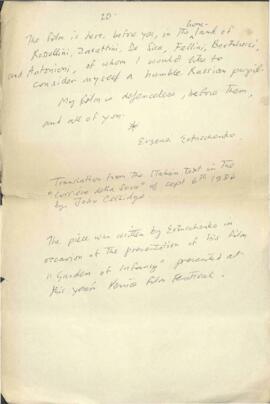 20.
home-
The film is here, before you, in the land of
Rossellini, Zavattini, De Sica, Fellini, Bertolucci,
and Antonioni, of whom I would like to
consider myself a humble Russian pupil.
My film is defenceless, before them,
and all of you.
*
Evgena Evtuschenko.
Translation from the Italian text in the
"Corriere della Sera" of Sept 6th 1984
by John
The piece was written by Evtuschenko in
occasion of the presentation of his film
"Garden of Infancy" presented at
this year's Venice Film Festival.